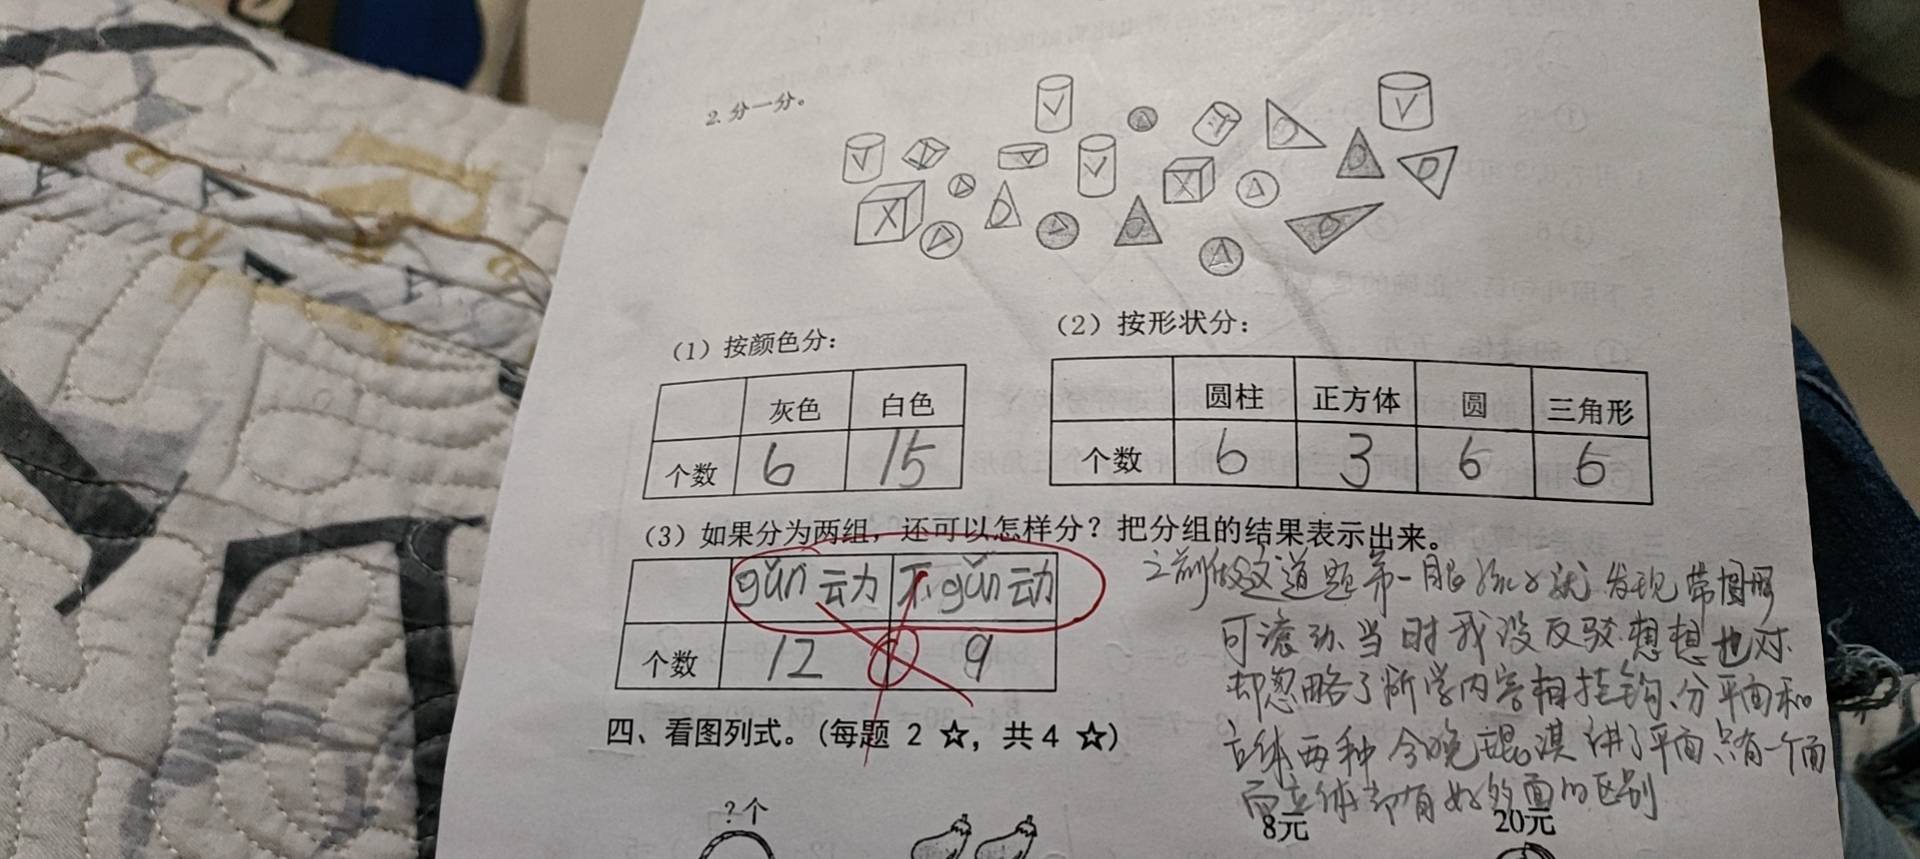 2.分一分。
(1)按颜色分:
(2)按形状分:
灰色 白色
个数 6 15
圆柱 正方体 圆 三角形
个数 6 3 6 6
(3)如果分为两组,还可以怎样分?把分组的结果表示出来。
gǔn 动 不gǔn 动
个数 12 9
之前做这道题第一眼 就发现带圆形
可滚动.当时我没反驳.想想也对.
却忽略了所学内容相挂钩.分平面和
立体两种 今晚 讲了平面只有一个面
而立体却有好多面的区别
四、看图列式。(每题 2 ☆,共 4 ☆)
?个
8元
20元